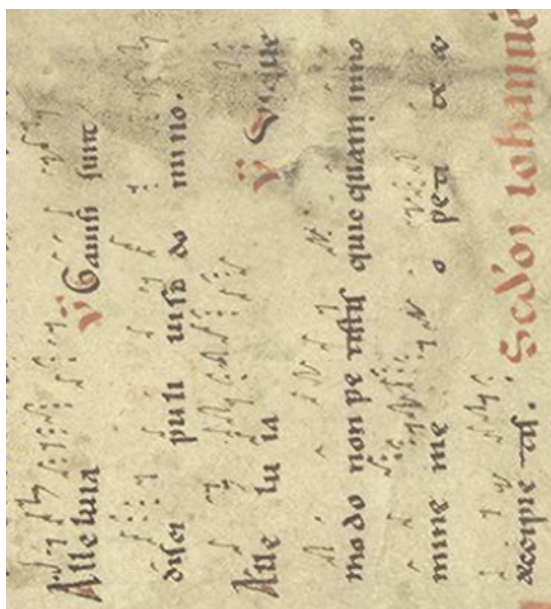 Alleluia ℣ Gauisi sunt
disci puli uiso do mino.
Alle lu ia ℣ Usque
modo non pe tistis quic quam in no
mine me o peti
accipie tis. Scdm iohanne